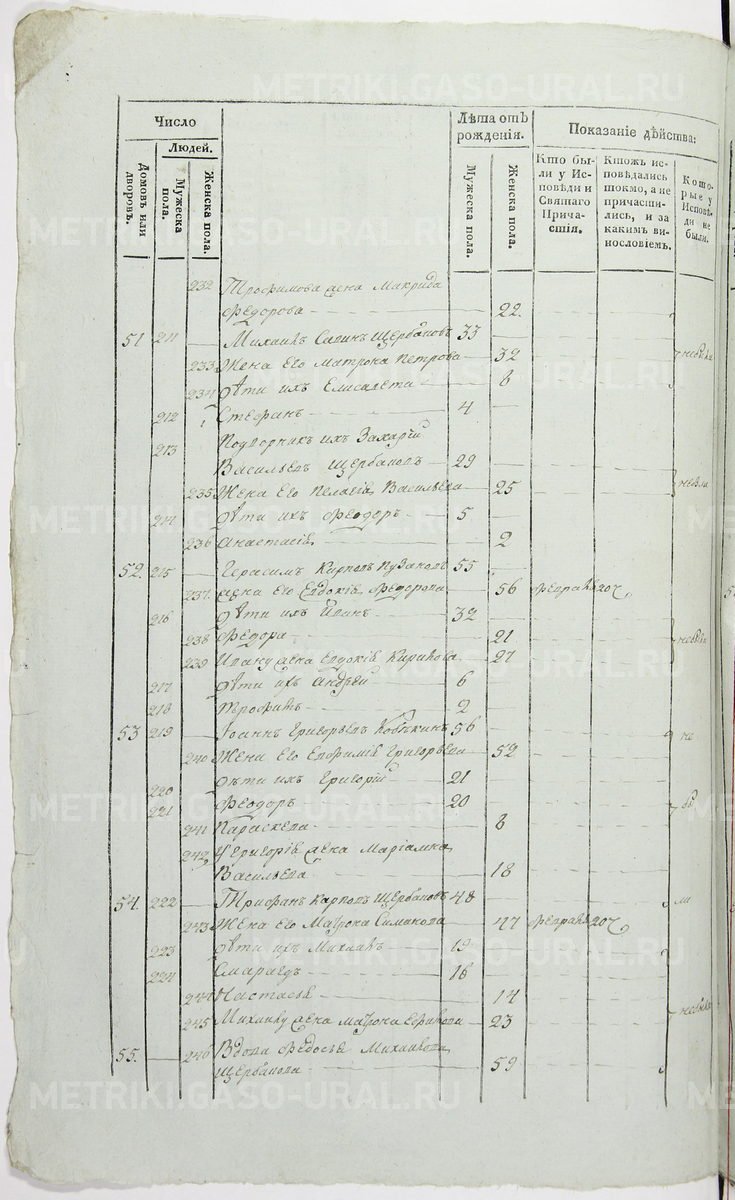 Число
Людей.
Домовъ или дворовъ.
Мужеска пола.
Женска пола.
Лѣта отъ рожденія.
Мужеска пола.
Женска пола.
Показаніе дѣйства:
Кто бы-
ли у Ис-
повѣди и
Святаго
Прича-
стія.
Ктожъ ис-
повѣдались
токмо, а не
причасти-
лись, и за
какимъ ви-
нословіемъ.
Кото-
рые у
Исповѣ-
ди не
были.
232 Трофимова жена Макрида
Федорова 22
51 211 Михаилъ Савинъ Щербаковъ 33
233 Жена Его Матрона Петрова 32 небыли
234 Дѣти ихъ Елисавета 8
212 Стефанъ 4
213 Подворникъ ихъ Захарій
Васильевъ Щербаковъ 29
235 Жена Его Пелагія Васильева 25
214 Дѣти ихъ Феодоръ 5
236 Анастасія 2
52. 215 Герасимъ Карповъ Пузановъ 55
237 жена Его Евдокія Федорова 56
216 Дѣти ихъ Иванъ 32
238 Федора 21
239 Ивану жена Евдокія Кирикова 27
217 Дѣти ихъ Андрей 6
218 Трофимъ 2
53 219 Іоаннъ Григорьевъ 56 не
240 Жена Его Евфимія Григорьева 52
220 Дѣти ихъ Григорій 21
221 Феодоръ 20 бы
241 Параскева 8
242 Григорія жена Маріамна
Васильева 18
54. 222 Трифанъ Карповъ Щербаковъ 48 ли
243 Жена Его Матрона Симакова 47
223 Дѣти ихъ Михаилъ 19
224 Смарагдъ 16
244 Настасья 14
245 Михаилу жена Матрона 23 небыли
55. 246 Вдова Федосья Михаилова
Щербакова 59
METRIKI.GASO-URAL.RU